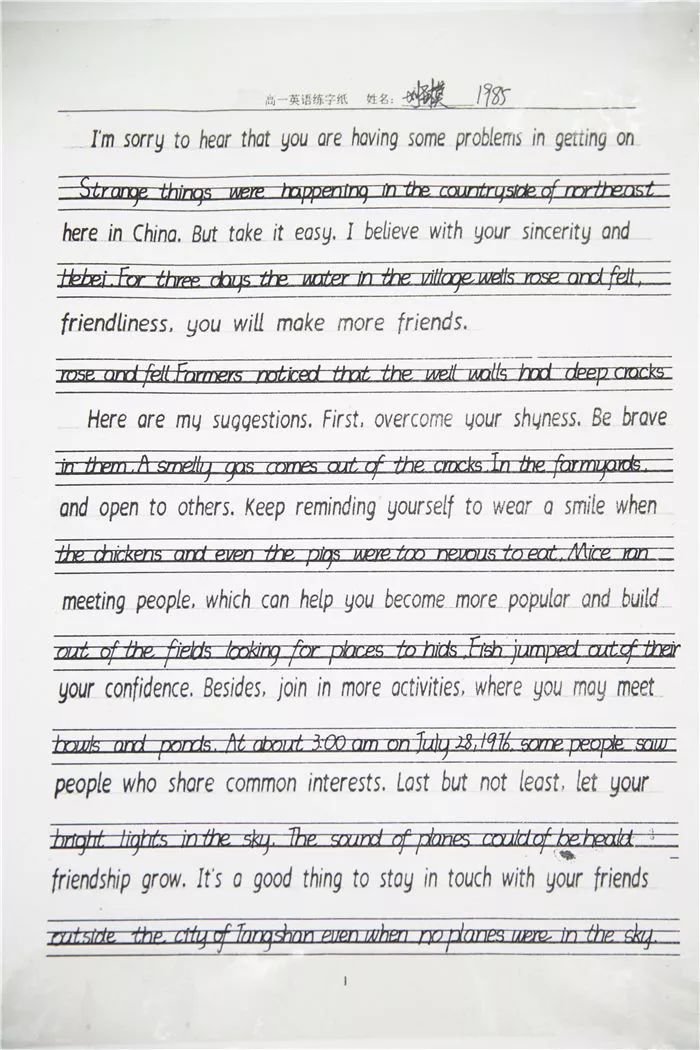 高一英语练字纸 姓名: 1985
I'm sorry to hear that you are having some problems in getting on
Strange things were happening in the countryside of northeast
here in China. But take it easy. I believe with your sincerity and
Hebei. For three days the water in the village wells rose and fell,
friendliness, you will make more friends.
rose and fell Farmers noticed that the well walls had deep cracks
Here are my suggestions. First, overcome your shyness. Be brave
in them. A smelly gas comes out of the cracks. In the farmyards,
and open to others. Keep reminding yourself to wear a smile when
the chickens and even the pigs were too nevous to eat. Mice ran
meeting people, which can help you become more popular and build
out of the fields looking for places to hids. Fish jumped out of their
your confidence. Besides, join in more activities, where you may meet
bowls and ponds. At about 3:00 am on July 28,1976. some people saw
people who share common interests. Last but not least, let your
bright lights in the sky. The sound of planes could of be heald
friendship grow. It's a good thing to stay in touch with your friends
outside the city of Tangshan even when no planes were in the sky.
1